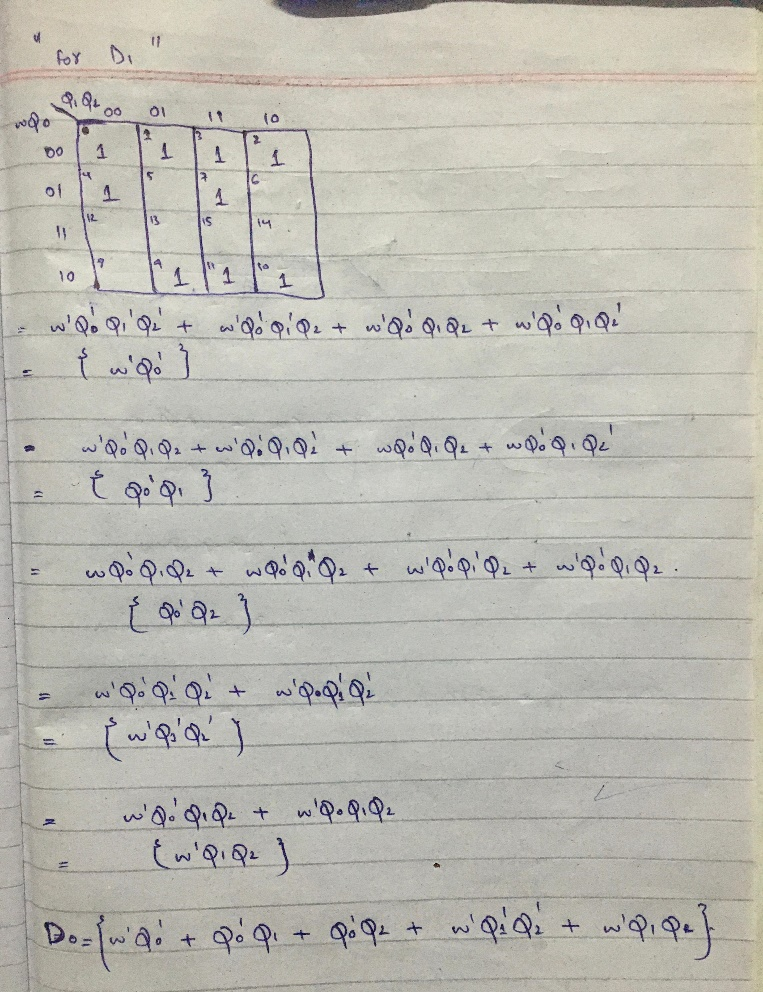 " For D₁ "
Q₁Q₂ 00 01 11 10
wQ₀
0 1 3 2
00 1 1 1 1
4 5 7 6
01 1 1
12 13 15 14
11
9 11 10
10 1 1 1
= w'Q₀'Q₁'Q₂' + w'Q₀'Q₁'Q₂ + w'Q₀'Q₁Q₂ + w'Q₀'Q₁Q₂'
= { w'Q₀' }
= w'Q₀'Q₁Q₂ + w'Q₀'Q₁Q₂' + wQ₀'Q₁Q₂ + wQ₀'Q₁Q₂'
= { Q₀'Q₁ }
= wQ₀'Q₁Q₂ + wQ₀'Q₁'Q₂ + w'Q₀'Q₁'Q₂ + w'Q₀'Q₁Q₂.
{ Q₀'Q₂ }
= w'Q₀'Q₁'Q₂' + w'Q₀Q₁'Q₂'
= { w'Q₁'Q₂' }
= w'Q₀'Q₁Q₂ + w'Q₀Q₁Q₂
= { w'Q₁Q₂ }
D₀ = { w'Q₀' + Q₀'Q₁ + Q₀'Q₂ + w'Q₁'Q₂' + w'Q₁Q₂ }